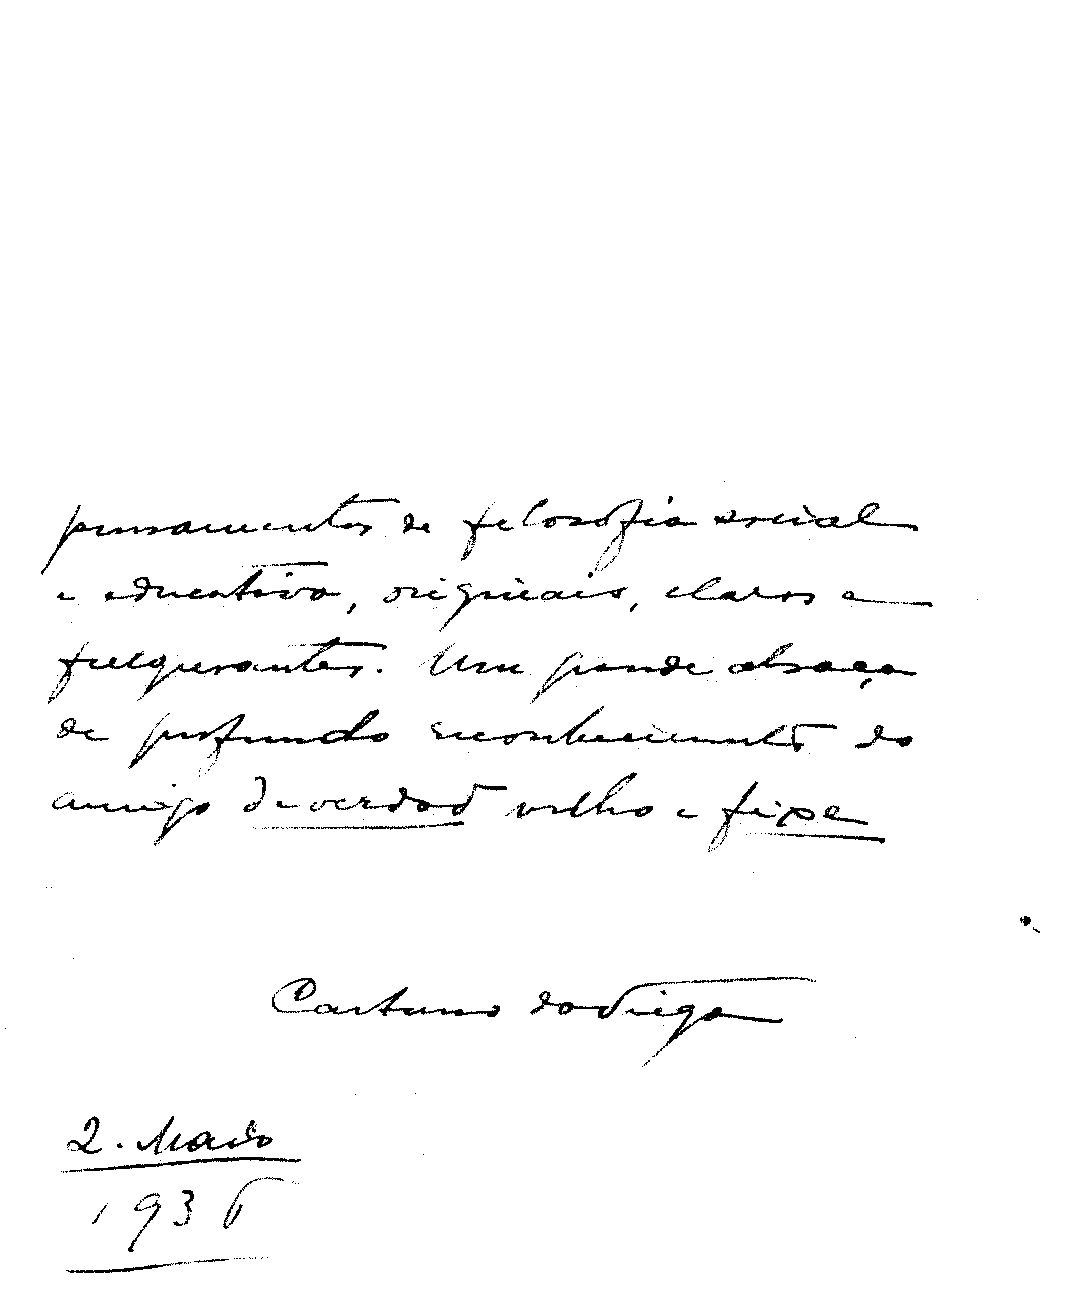 pensamentos de filosofia social
e educativa, originais, claros e
fulgurantes. Um grande abraço
de profundo reconhecimento do
amigo de verdade velho e fixe
Caetano da Veiga
2. Maio
1936